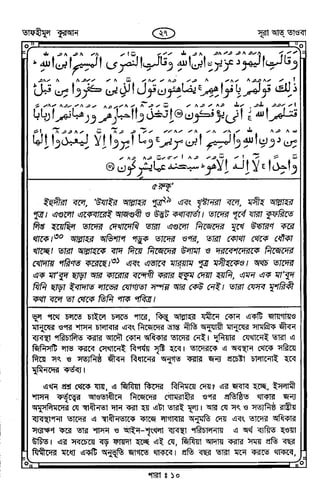 তাফহীমুল কুরআন
২৭
সূরা আত্ তাওবা
وَقَالَتِ الْيَهُودُ عُزَيْرٌ ابْنُ اللهِ وَقَالَتِ النَّصٰرَى الْمَسِيْحُ ابْنُ اللهِ ۚ
ذٰلِكَ قَوْلُهُمْ بِاَفْوَاهِهِمْ ۚ يُضَاهِئُوْنَ قَوْلَ الَّذِيْنَ كَفَرُوْا مِنْ قَبْلُ ۚ
قٰتَلَهُمُ اللهُ ۚ اَنّٰى يُؤْفَكُوْنَ ۝ اِتَّخَذُوْٓا اَحْبَارَهُمْ وَرُهْبَانَهُمْ اَرْبَابًا
مِّنْ دُوْنِ اللهِ وَالْمَسِيْحَ ابْنَ مَرْيَمَ ۚ وَمَآ اُمِرُوْٓا اِلَّا لِيَعْبُدُوْٓا اِلٰهًا
وَّاحِدًا ۚ لَآ اِلٰهَ اِلَّا هُوَ ۚ سُبْحٰنَهٗ عَمَّا يُشْرِكُوْنَ ۝
৫ রুকু'
ইহুদীরা বলে, 'উযাইর আল্লাহর পুত্র২৯ এবং খৃস্টানরা বলে, মসীহ আল্লাহর
পুত্র। এগুলো একেবারেই আজগুবী ও উদ্ভট কথাবার্তা। তাদের পূর্বে যারা কুফরিতে
লিপ্ত হয়েছিল তাদের দেখাদেখি তারা এগুলো নিজেদের মুখে উচ্চারণ করে
থাকে।৩০ আল্লাহর অভিশাপ পড়ুক তাদের ওপর, তারা কোথা থেকে ধোঁকা
খাচ্ছে! তারা আল্লাহকে বাদ দিয়ে নিজেদের উলামা ও দরবেশদেরকে নিজেদের
খোদায় পরিণত করেছে।৩১ এবং এভাবে মারয়াম পুত্র মসীহকেও। অথচ তাদের
এক মা'বুদ ছাড়া আর কারোর বন্দেগী করার হুকুম দেয়া হয়নি, এমন এক মা'বুদ
যিনি ছাড়া ইবাদাত লাভের যোগ্যতা সম্পন্ন আর কেউ নেই। তারা যেসব মুশরিকী
কথা বলে তা থেকে তিনি পাক পবিত্র।
ভুল পথে চলতে চাইলে চলতে পারে, কিন্তু আল্লাহর যমীনে কোন একটি জায়গায়ও
মানুষের ওপর শাসন চালাবার এবং নিজেদের ভ্রান্ত নীতি অনুযায়ী মানুষের সামষ্টিক জীবন
ব্যবস্থা পরিচালিত করার আদৌ কোন অধিকার তাদের নেই। দুনিয়ার যেখানেই তারা এ
জিনিসটি লাভ করবে সেখানেই বিপর্যয় সৃষ্টি হবে। তাদেরকে এ অবস্থান থেকে সরিয়ে
দিয়ে সৎ ও সত্যনিষ্ঠ জীবন বিধানের অনুগত করার জন্য প্রচেষ্টা চালানোই হবে
মুমিনদের কর্তব্য।
এখন প্রশ্ন থেকে যায়, এ জিযিয়া কিসের বিনিময়ে দেয়। এর জবাব হচ্ছে, ইসলামী
শাসন কর্তৃত্বের আওতাধীনে নিজেদের গোমরাহীর ওপর প্রতিষ্ঠিত থাকার জন্য
অমুসলিমদের যে স্বাধীনতা দান করা হয় এটা তারই মূল্য। আর যে সৎ ও সত্যনিষ্ঠ রাষ্ট্রীয়
ব্যবস্থাপনা তাদের এ স্বাধীনতাকে কাজে লাগাবার অনুমতি দেয় এবং তাদের অধিকার
সংরক্ষণ করে তার শাসন ও আইন-শৃংখলা ব্যবস্থা পরিচালনায় এ অর্থ ব্যয়িত হওয়া
উচিত। এর সবচেয়ে বড় ফায়দা হচ্ছে এই যে, জিযিয়া আদায় করার সময় প্রতি বছর
যিম্মীদের মধ্যে একটি অনুভূতি জাগতে থাকবে। প্রতি বছর তারা মনে করতে থাকবে,
পারা : ১০